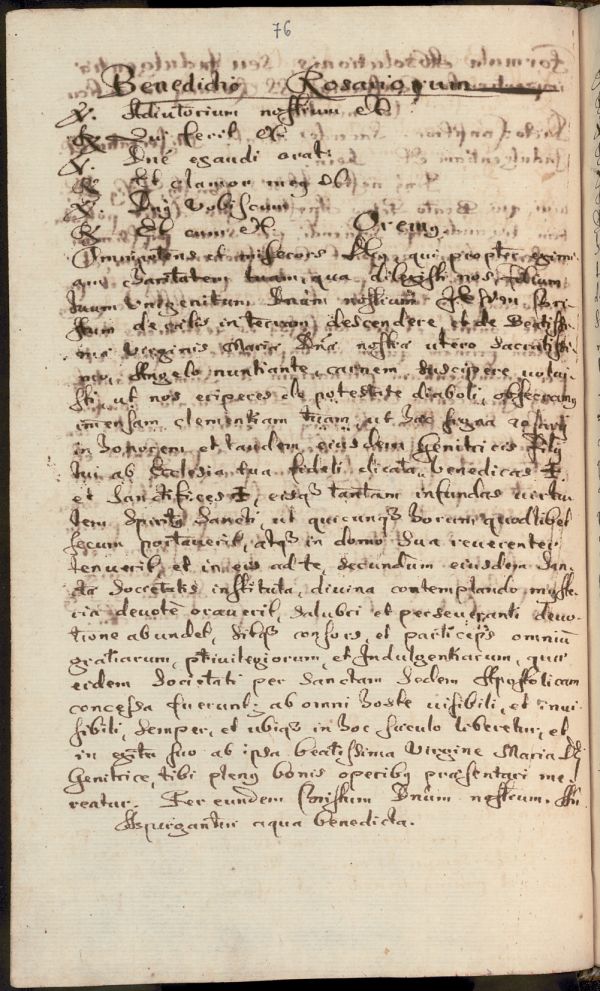 76
Benedictio Rosariorum
℣. Adiutorium nostrum etc.
℟. Qui fecit etc.
℣. Dne exaudi orat:
℟. Et clamor meus etc.
℣. Dns Vobiscum
℟. Et cum etc. Oremus
Omnipotens et misericors Deus, qui propter eximi-
am Charitatem tuam, qua dilexisti nos, filium
tuum Unigenitum Dnum nostrum Jesum Chri-
stum de caelis in terram descendere, et de Beatissi-
ma Virginis Mariae Dnae nostrae utero sacratissi-
mo, Angelo nuntiante, carnem suscipere volui-
sti, ut nos eriperes de potestate diaboli, obsecramus
immensam clementiam tuam, ut haec signa rosarii
in honorem et laudem eiusdem Genitricis Filij
tui ab Ecclesia tua fideli dicata, benedicas ✠
et Sanctifices ✠, eisq3 tantam infundas virtu-
tem Spiritus Sancti, ut quicunq3 horum quodlibet
secum portaverit, atq3 in domo sua reverenter
tenuerit, et in eis ad te, secundum eiusdem San-
ctae Societatis instituta, divina contemplando myste-
ria devotè oraverit, salubri et perseveranti devo-
tione abundet, sitq3 consors, et particeps omniū
gratiarum, privilegiorum, et Indulgentiarum, quae
eidem Societati per Sanctam Sedem Apostolicam
concessa fuerunt; ab omni hoste visibili, et invi-
sibili, semper, et ubiq3 in hoc saeculo liberetur, et
in exitu suo ab ipsa beatissima Virgine Maria Dei
Genitrice, tibi plenus bonis operibus praesentari me-
reatur. Per eundem Christum Dnum nostrum. Am
Aspergantur aqua benedicta.